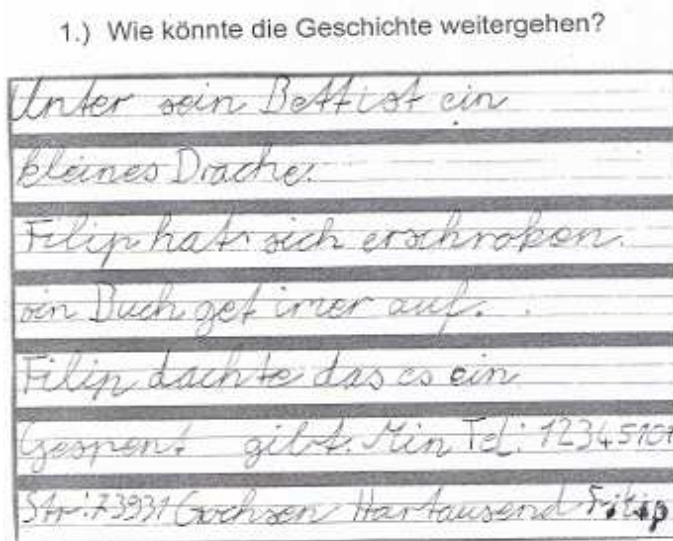 1.) Wie könnte die Geschichte weitergehen?
Unter sein Bett ist ein
kleines Drache.
Filip hat sich erschroken.
sein Buch get imer auf.
Filip dachte das es ein
Gespent gibt. Min Tel: 12345101
Str: 73931 Gochsen Hartausend Filip